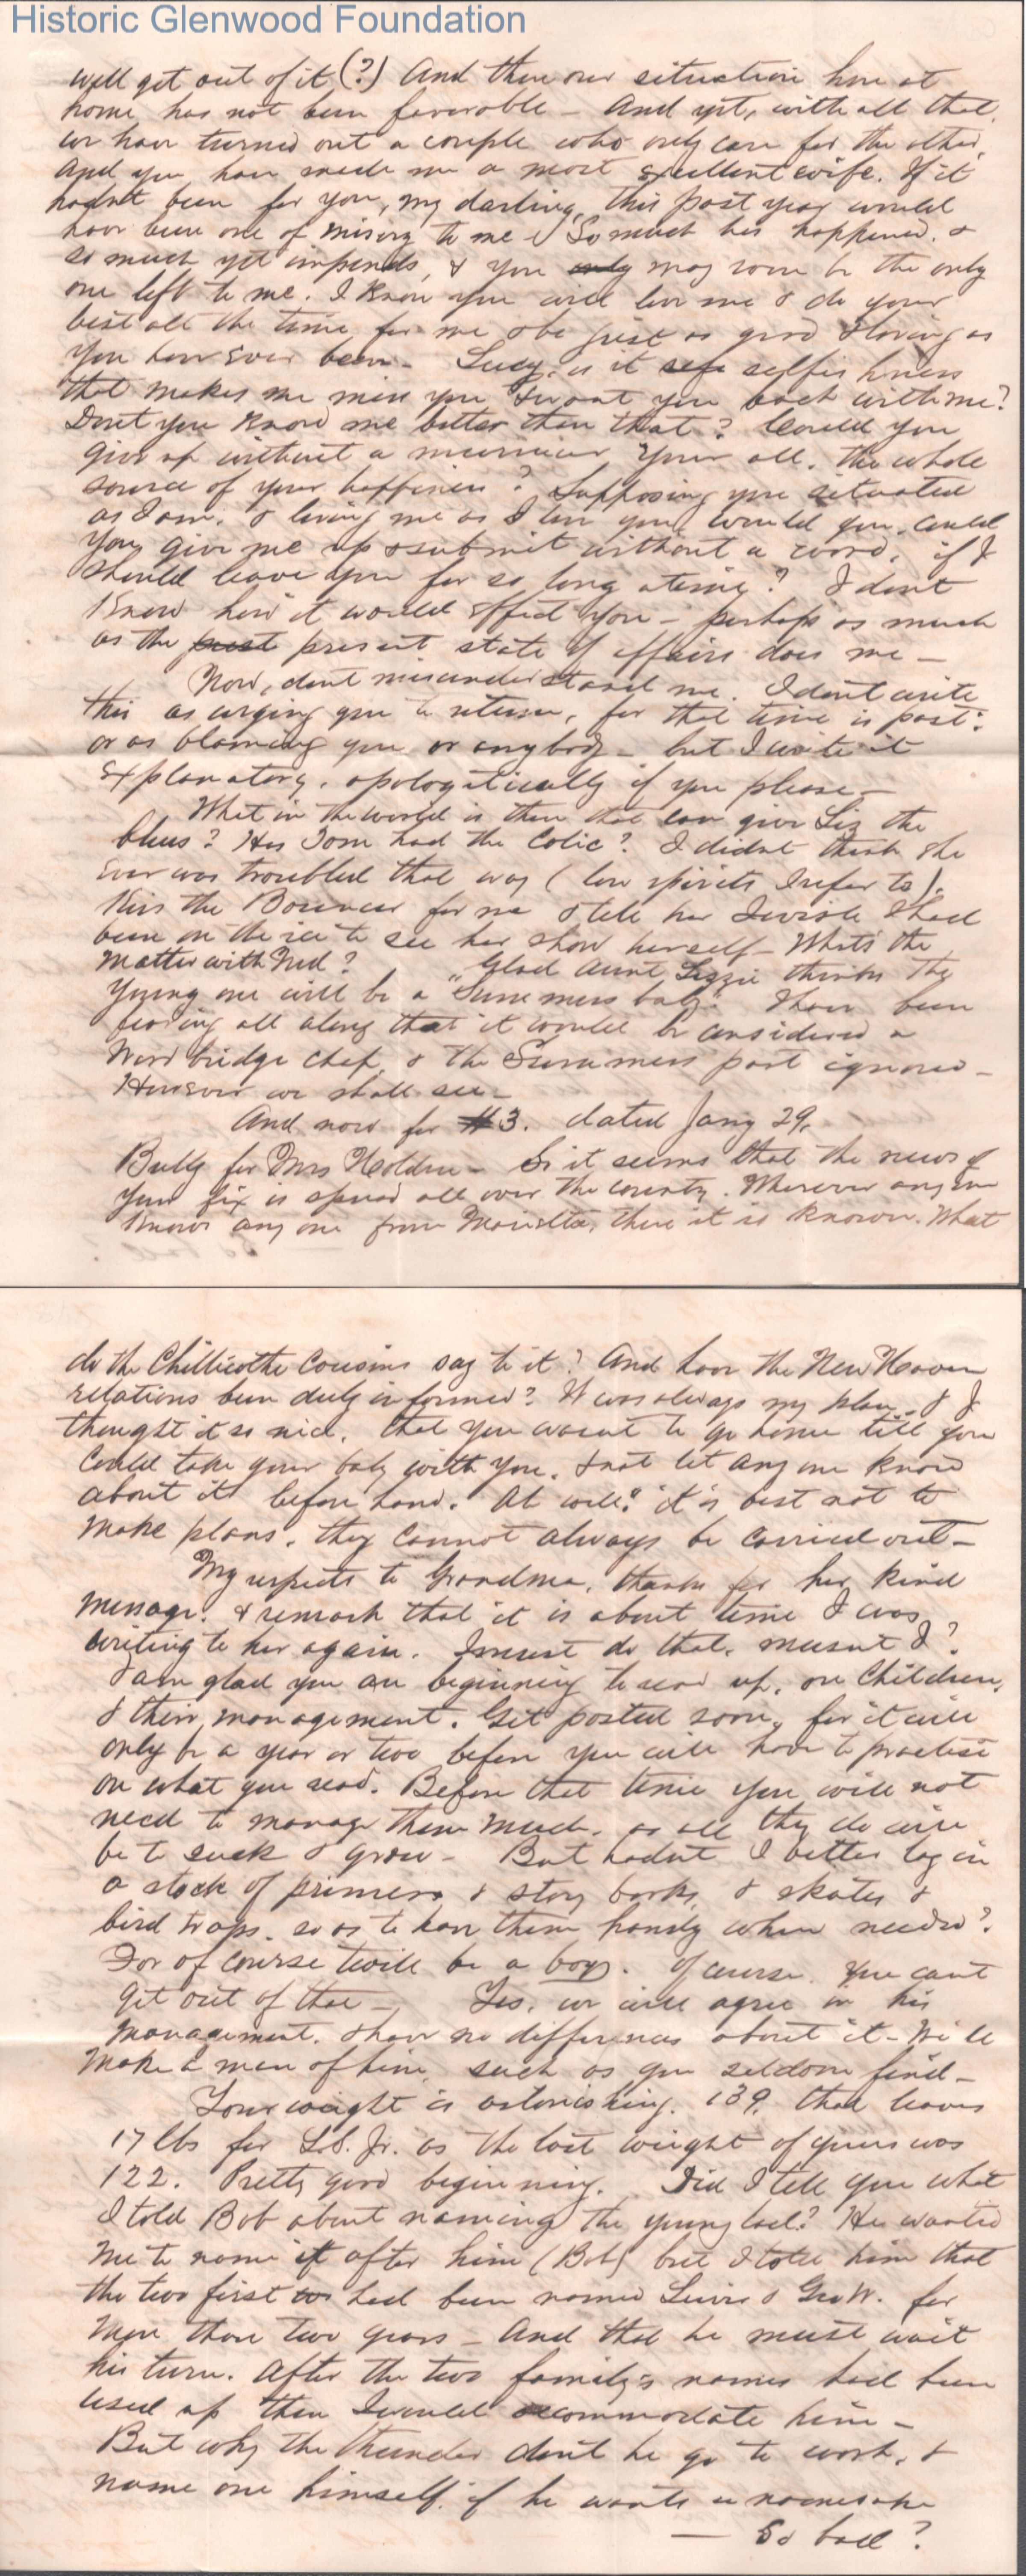 Historic Glenwood Foundation
will get out of it (?) And then our situation here at
home has not been favorable - And yet, with all that,
we have turned out a couple who only care for the other,
And you have made me a most excellent wife. If it
hadnt been for you, my darling, this past year would
have been one of misery to me - So much has happened, &
so much yet impends, & you only may soon be the only
one left to me. I know you will love me & do your
best all the time for me & be just as good & loving as
you have ever been. Lucy, is it self selfishness
that makes me miss you & want you back with me?
Dont you know me better than that? Could you
give up without a murmur your all, the whole
source of your happiness? Supposing you situated
as I am, & loving me as I love you, would you, could
you give me up & submit without a word, if I
should leave you for so long a time? I dont
know how it would effect you - perhaps as much
as the present state of affairs does me -
Now, dont misunderstand me. I dont write
this as urging you to return, for that time is past:
or as blaming you or anybody - but I write it
explanatory, apologetically if you please -
What in the world is there that can give Liz the
blues? Has Tom had the Colic? I didnt think she
ever was troubled that way (low spirits I refer to).
Kiss the for me & tell her I wish I had
been on the ice to see her show herself - Whats the
matter with Ned? Glad Aunt Lizzie thinks the
young one will be a "Summers baby". I have been
fearing all along that it would be considered a
Woodbridge chef, & the Summers part ignored -
However we shall see -
And now for #3. dated Jany 29.
Bully for Mrs Holden - So it seems that the news of
your fix is spread all over the county. Wherever any one
knows any one from Marietta, there it is known. What
do the Chillicothe Cousins say to it? And have the New Haven
relations been duly informed? It was always my plan, & I
thought it so nice, that you wasnt to go home till you
could take your baby with you, & not let any one know
about it before hand. Ah well! it is best not to
make plans, they cannot always be carried out -
My respects to Grandma, thanks for her kind
message, & remark that it is about time I was
writing to her again. I must do that, musnt I?
I am glad you are beginning to read up, on Children,
& their management. Get posted soon, for it will
only be a year or two before you will have to practise
on what you read. Before that time you will not
need to manage them much, as all they do will
be to suck & grow - But hadnt I better lay in
a stock of primers, & story books, & skates &
bird traps, so as to have them handy when needed?
For of course twill be a boy. Of course. You cant
get out of that - Yes, we will agree in his
management, & have no differences about it - We'll
make a man of him, such as you seldom find -
Your weight is astonishing. 139, that leaves
17 lbs for L.S. Jr. as the last weight of yours was
122. Pretty good beginning. Did I tell you what
I told Bob about naming the young lad? He wanted
me to name it after him (Bob) but I told him that
the two first had been named Lewis & Geo W. for
more than two years - And that he must wait
his turn. After the two family's names had been
used up then I would accommodate him -
But why the thunder dont he go to work, &
name one himself, if he wants a namesake